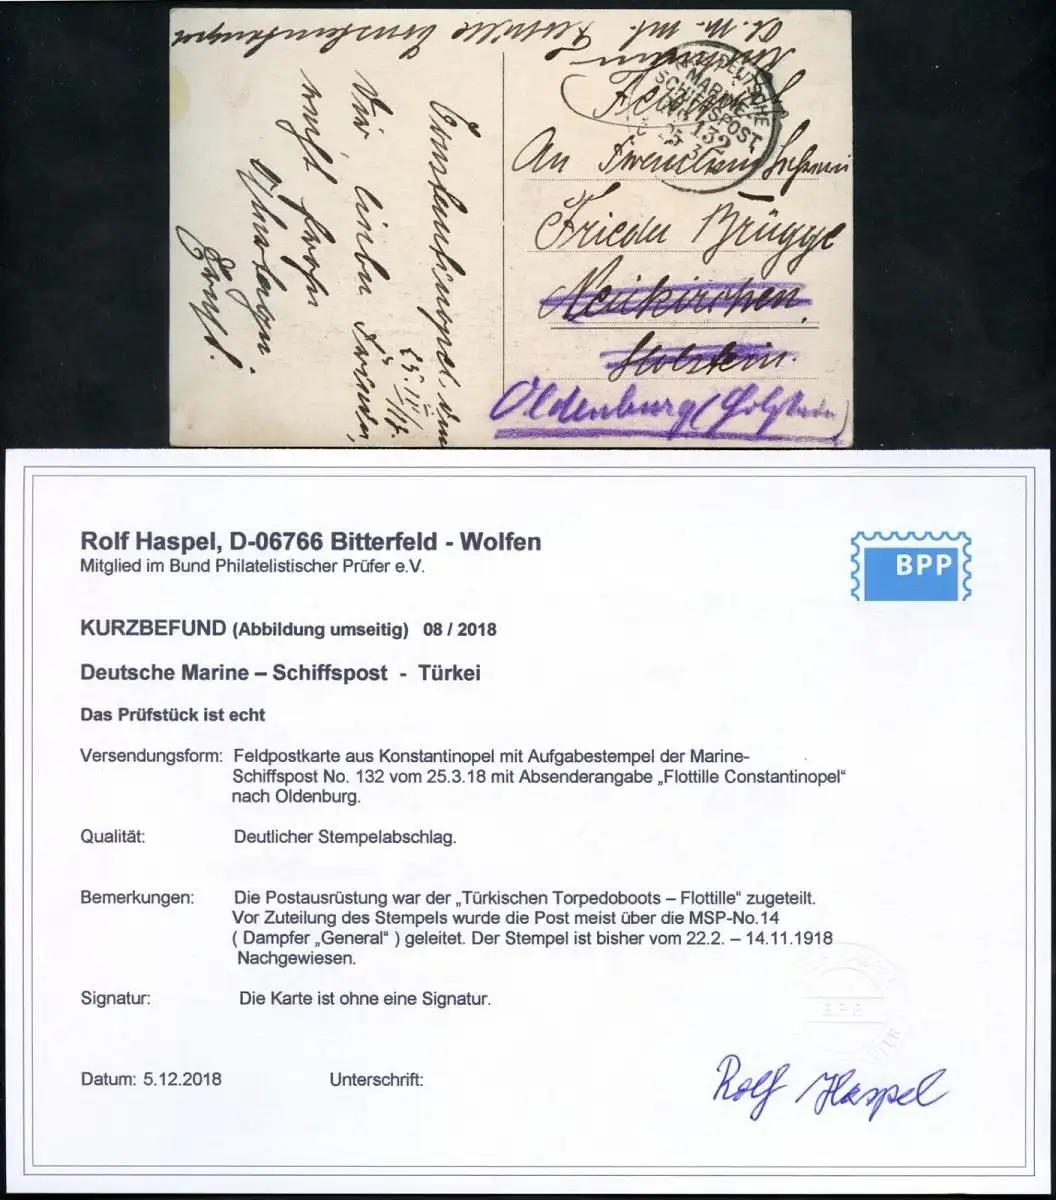 Flottille Constantinopel
KAIS. DEUTSCHE
MARINE-
SCHIFFSPOST
No 132
25 3
An
Frieda Brügge
Neukirchen
Holstein.
Oldenburg (Holstein)
Constantinopel, den
Rolf Haspel, D-06766 Bitterfeld - Wolfen
Mitglied im Bund Philatelistischer Prüfer e.V.
BPP
KURZBEFUND (Abbildung umseitig) 08 / 2018
Deutsche Marine – Schiffspost - Türkei
Das Prüfstück ist echt
Versendungsform: Feldpostkarte aus Konstantinopel mit Aufgabestempel der Marine-
Schiffspost No. 132 vom 25.3.18 mit Absenderangabe „Flottille Constantinopel“
nach Oldenburg.
Qualität: Deutlicher Stempelabschlag.
Bemerkungen: Die Postausrüstung war der „Türkischen Torpedoboots – Flottille“ zugeteilt.
Vor Zuteilung des Stempels wurde die Post meist über die MSP-No.14
( Dampfer „General“ ) geleitet. Der Stempel ist bisher vom 22.2. – 14.11.1918
Nachgewiesen.
Signatur: Die Karte ist ohne eine Signatur.
B.P.P.
Datum: 5.12.2018 Unterschrift: Rolf Haspel